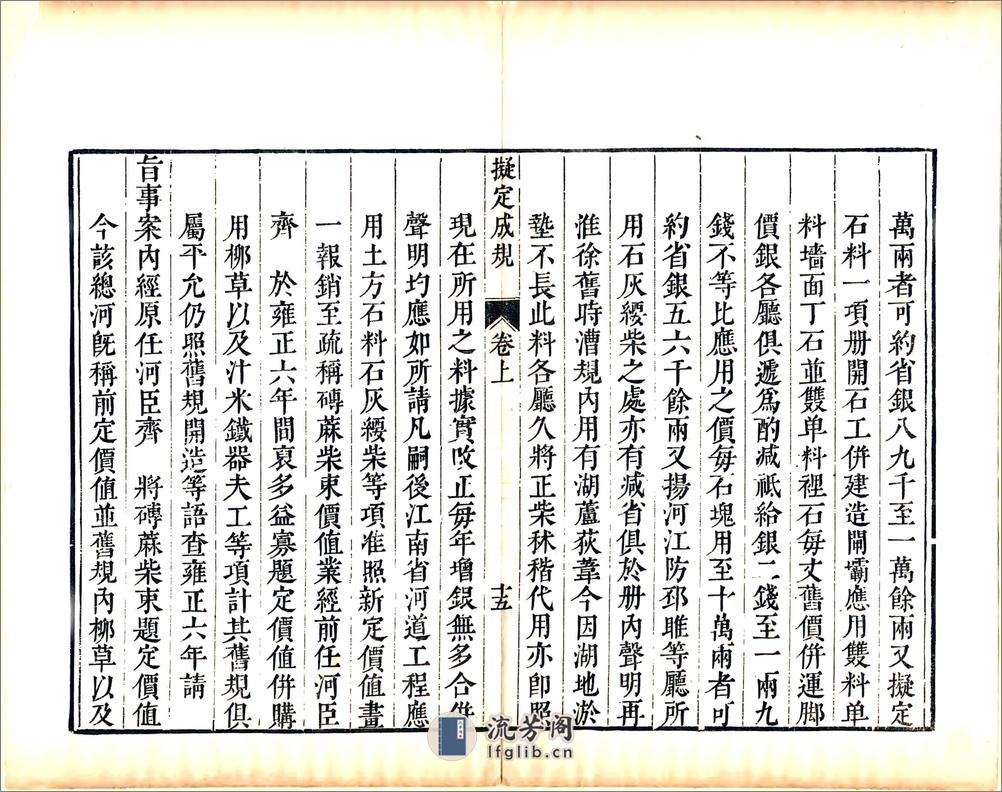 萬兩者可約省銀八九千至一萬餘兩又擬定
石料一項册開石工併建造閘壩應用雙料单
料墙面丁石並雙单料裡石每丈舊價併運脚
價銀各廳俱遞爲酌减祗給銀二錢至一兩九
錢不等比應用之價每石塊用至十萬兩者可
約省銀五六千餘兩又揚河江防邳睢等廳所
用石灰纓柴之處亦有减省俱於册內聲明再
淮徐舊時漕規內用有湖蘆荻葦今因湖地淤
墊不長此料各廳久將正柴秫稭代用亦卽照
擬定成規 卷上 十五
現在所用之料據實改正每年增銀無多合併
聲明均應如所請凡嗣後江南省河道工程應
用土方石料石灰纓柴等項准照新定價值畫
一報銷至疏稱磚蔴柴束價值業經前任河臣
齊 於雍正六年間裒多益寡題定價值併購
用柳草以及汁米鐵器夫工等項計其舊規俱
屬平允仍照舊規開造等語查雍正六年請
旨事案內經原任河臣齊 將磚蔴柴束題定價值
今該總河旣稱前定價值並舊規內柳草以及
流芳阁
lfglib.cn